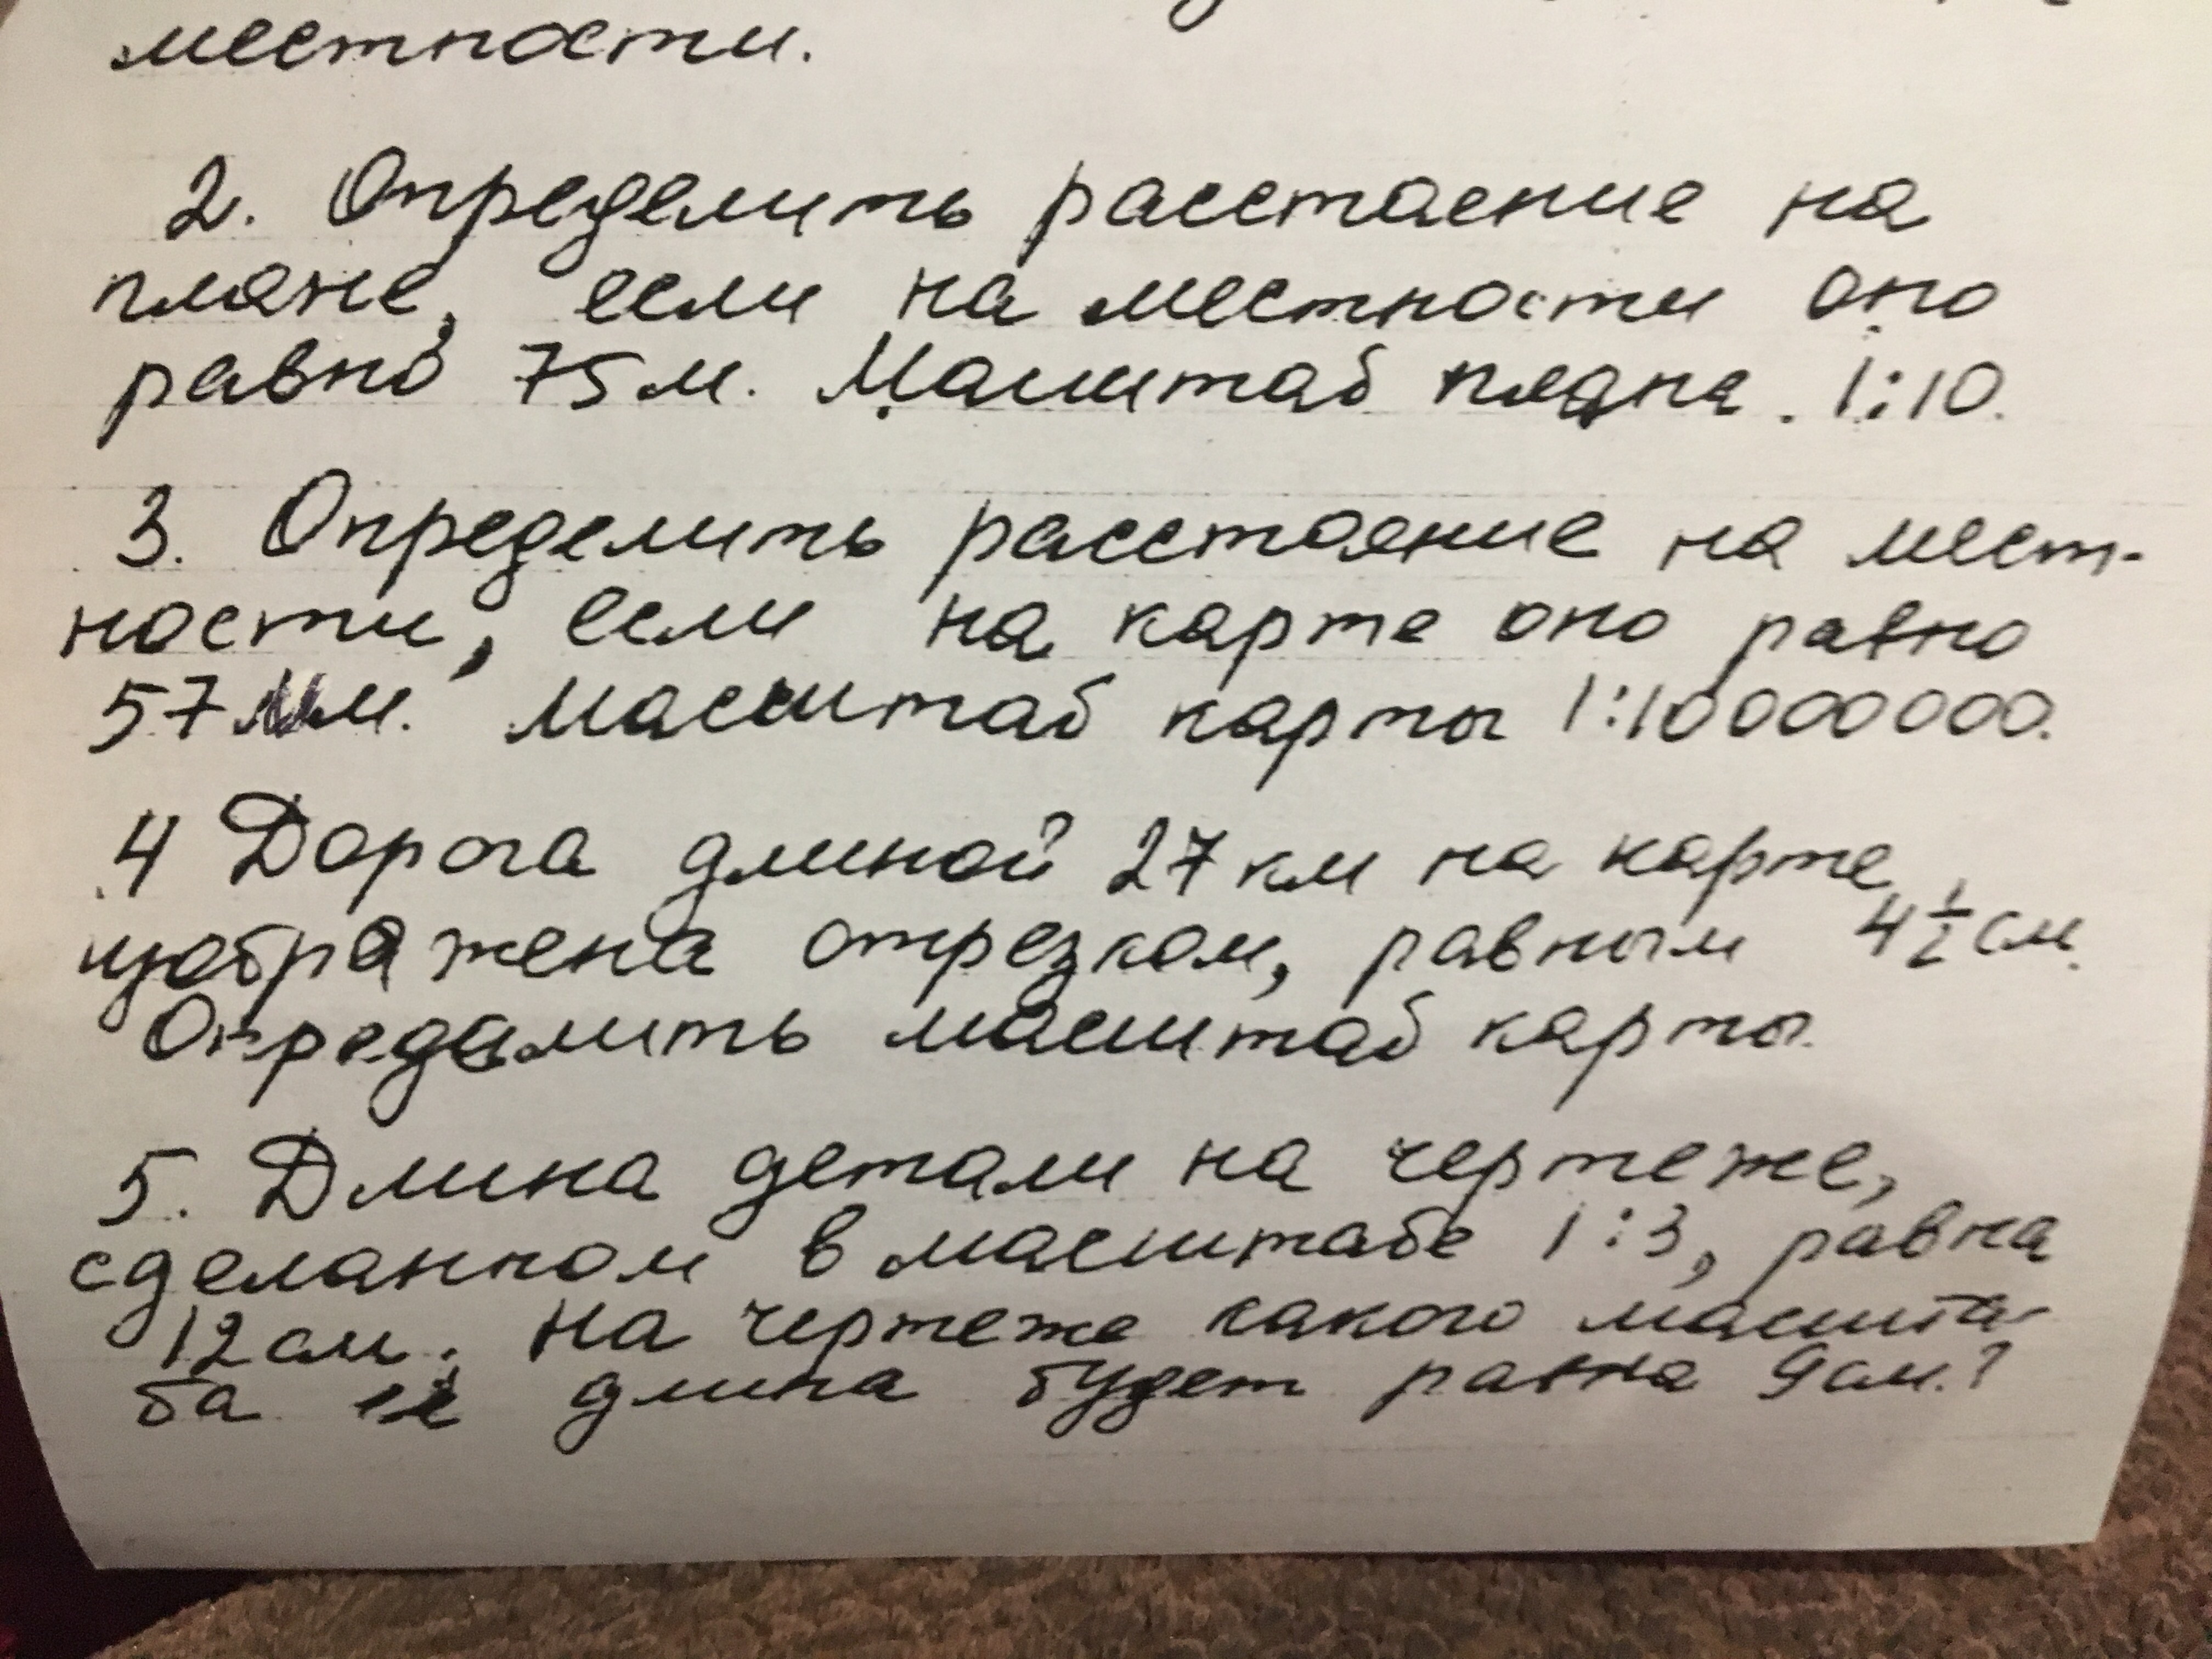 местности.
2. Определить расстояние на
плане, если на местности оно
равно 75 м. Масштаб плана 1:10.
3. Определить расстояние на мест-
ности, если на карте оно равно
57 мм. Масштаб карты 1:10000000.
4 Дорога длиной 27 км на карте
изображена отрезком, равным 4 1/2 см.
Определить масштаб карты.
5. Длина детали на чертеже,
сделанном в масштабе 1:3, равна
12 см. На чертеже какого масшта-
ба её длина будет равна 9 см.?